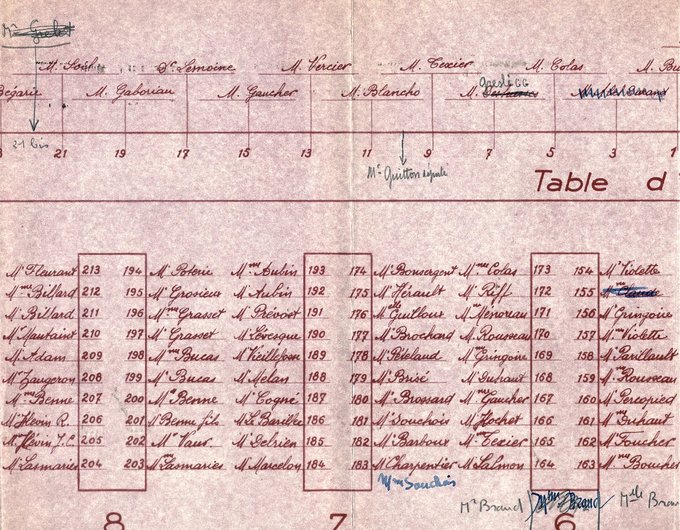 M. Vercier M. Texier M. Colas
M. Gaboriau M. Gaucher M. Blancho M.
21 bis
21 19 17 15 13 11 9 7 5 3 1
Mr Guitton député
Table d
Mr Fleurant 213 194 Mr Poterie Mme Aubin 193 174 Mr Bonsergent Mme Colas 173 154 Mr Violette
Mme Billard 212 195 Mr Grosieux Mr Aubin 192 175 Mr Hérault Mr Riff 172 155
Mr Billard 211 196 Mme Grasset Mr Prévost 191 176 Melle Guilloux Mr Menoreau 171 156 Mr Gringoire
Mr Mautaint 210 197 Mr Grasset Mr Lévesque 190 177 Mr Brochard M. Rousseau 170 157 Mme Violette
Mr Adam 209 198 Mme Bucas Mr Vieillefosse 189 178 Mr Pételaud Mme Gringoire 169 158 Mr Parillault
Mr Zaugeron 208 199 Mr Bucas Mr Melan 188 179 Mr Brisé Mr Duhaut 168 159 Mme Rousseau
Mme Benne 207 200 Mr Benne Mr Cogné 187 180 Mr Brossard Mme Gaucher 167 160 Mr Percepied
Mr Hévin R. 206 201 Mr Benne fils Mr Le Barillec 186 181 Mr Souchois Mr Hochet 166 161 Mme Duhaut
Mr Hévin J.C. 205 202 Mr Vaur Mr Delrien 185 182 Mr Barboux Mme Texier 165 162 Mr Foucher
Mr Lasmaries 204 203 Mme Lasmaries Mr Marcelon 184 183 Mr Charpentier Mr Salmon 164 163 Mme Boucher
Mme Souchois
Mr Braud Mme Braud Melle Brau
8 7 6